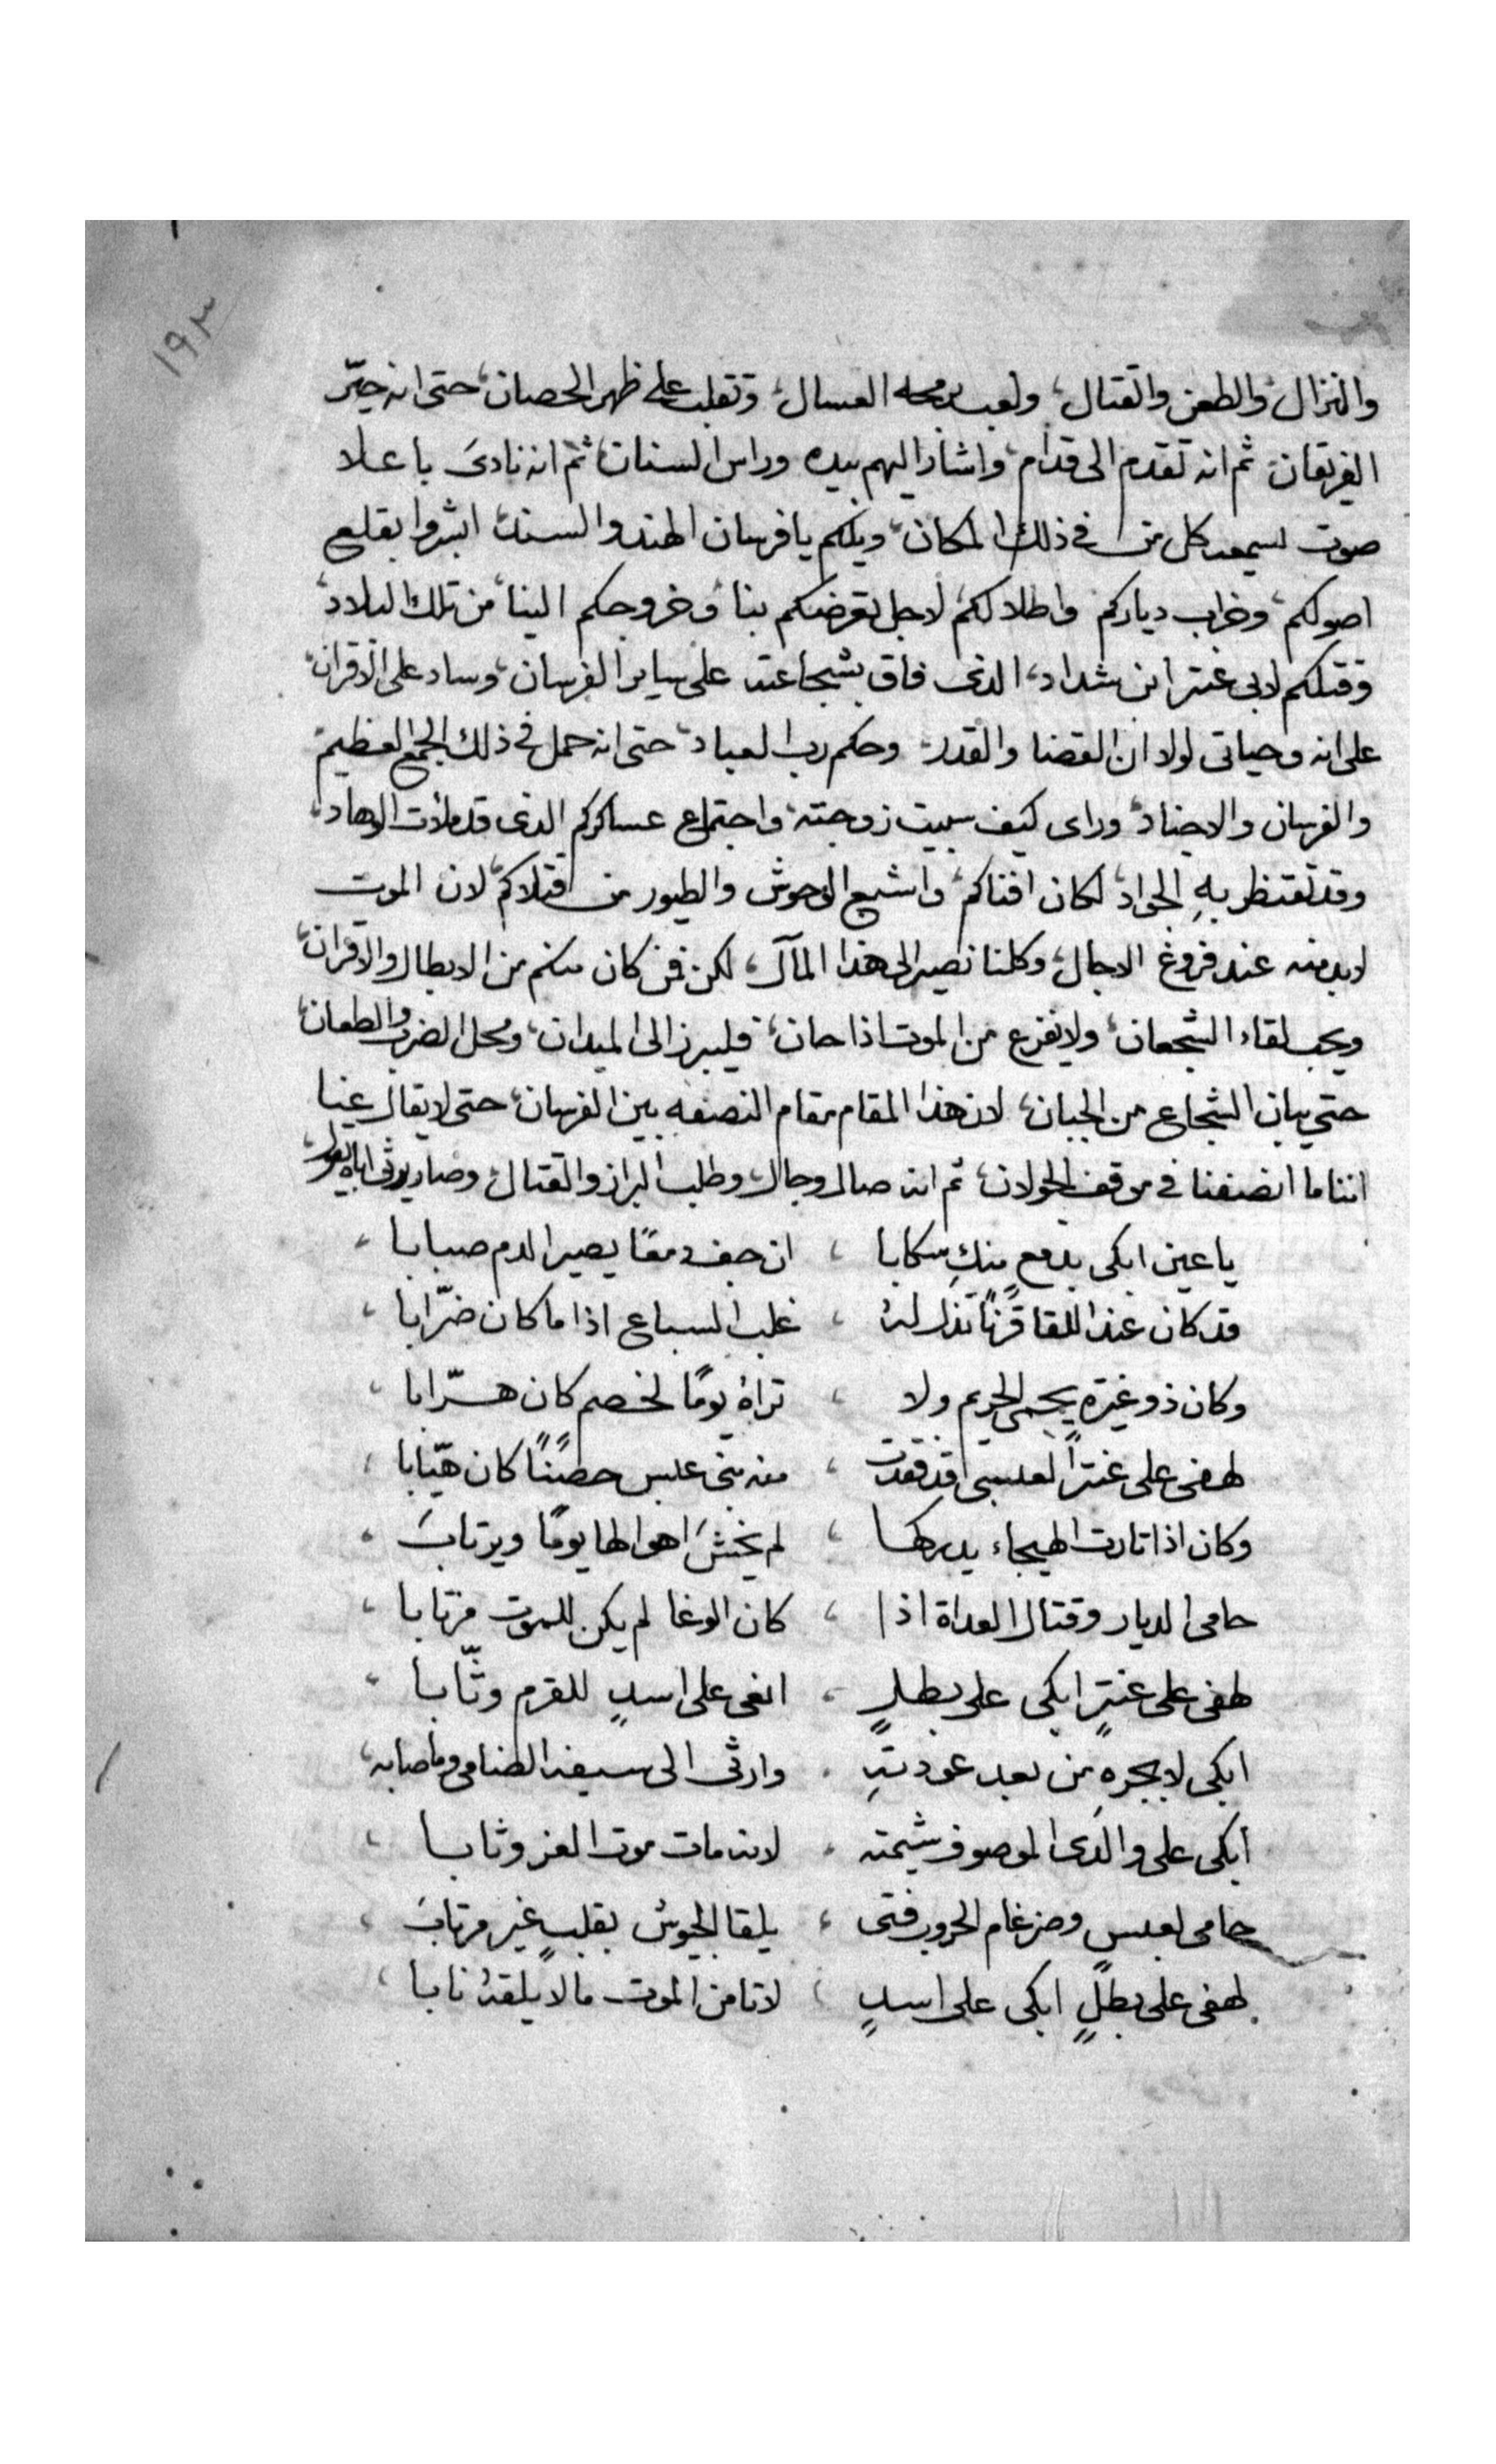 ١٩٣
والنزال، والطعن والقتال، ولعب برمحه العسال، وتقلب على ظهر الحصان، حتى انه حيّر
الفريقان، ثم انه تقدم الى قدام، واشار اليهم بيده وراس السنان، ثم انه نادى باعلا
صوت يسمعه كل من في ذلك المكان، ويلكم يا فرسان الهند والسند، ابشروا بقلع
اصولكم، وخراب دياركم واطلالكم، لاجل تعرضكم بنا، وخروجكم الينا، من تلك البلاد،
وقتلكم لابي عنتر ابن شداد، الذى فاق بشجاعته على ساير الفرسان، وساد على الاقران،
على انه وحياتى لولا ان القضا والقدر، وحكم رب العباد، حتى انه حمل في ذلك الجمع العظيم،
والفرسان والاجناد، وراى كيف سبيت زوجته، واجتماع عساكركم الذى قد ملات الوهاد،
وقد تقنظر بهِ الجواد، لكان افناكم، واشبع الوحوش والطيور من قتلاكم، لان الموت
لابد منه عند فروغ الاجال، وكلنا نصير الى هذا المآل، لكن فمن كان منكم من الابطال والاقران،
ويحب لقاء الشجعان، ولا يفزع من الموت اذا حان، فليبرز الى الميدان، ومحل الضرب والطعان،
حتى يبان الشجاع من الجبان، لان هذا المقام مقام النصفه بين الفرسان، حتى لا يقال عنا
اننا ما انصفنا في موقف الجولان، ثم انه صال وجال، وطلب البراز والقتال، وصار يرثى اباه
يا عين ابكى بدمع منكِ سكابا ، ان جف دمعًا يصير الدم صبابا ،
قد كان عند اللقا قرنًا تذل لهُ ، غلب السباع اذا ما كان ضرّابا ،
وكان ذو غيرة يحمى الحريم ولا ، تراهُ يومًا لخصم كان هرّابا ،
لهفى على عنتر العبسى قد فقدت ، منه بنى عبس حصنًا كان هيّابا ،
وكان اذا ثارت الهيجاء يدركها ، لم يخشَ اهوالها يومًا ويرتابَ ،
حامى الديار وقتال العداة اذا ، كان الوغا لم يكن للموت مرتابا ،
لهفى على عنترٍ ابكى على بطلٍ ، انعى على اسدٍ للقرم وثّابا ،
ابكى لابجرهِ من بعد عودتهِ ، وارثى الى سيفه الضامى وما صابه،
ابكى على والدى الموصوف شيمته ، لانه مات موت العز وثابا ،
حامى لعبس وضرغام الحروب فتى ، يلقا الجيوش بقلبٍ غير مرتابَ ،
لهفى على بطلٍ ابكى على اسدٍ ، لا تامن الموت مالا يلقهُ نابا ،